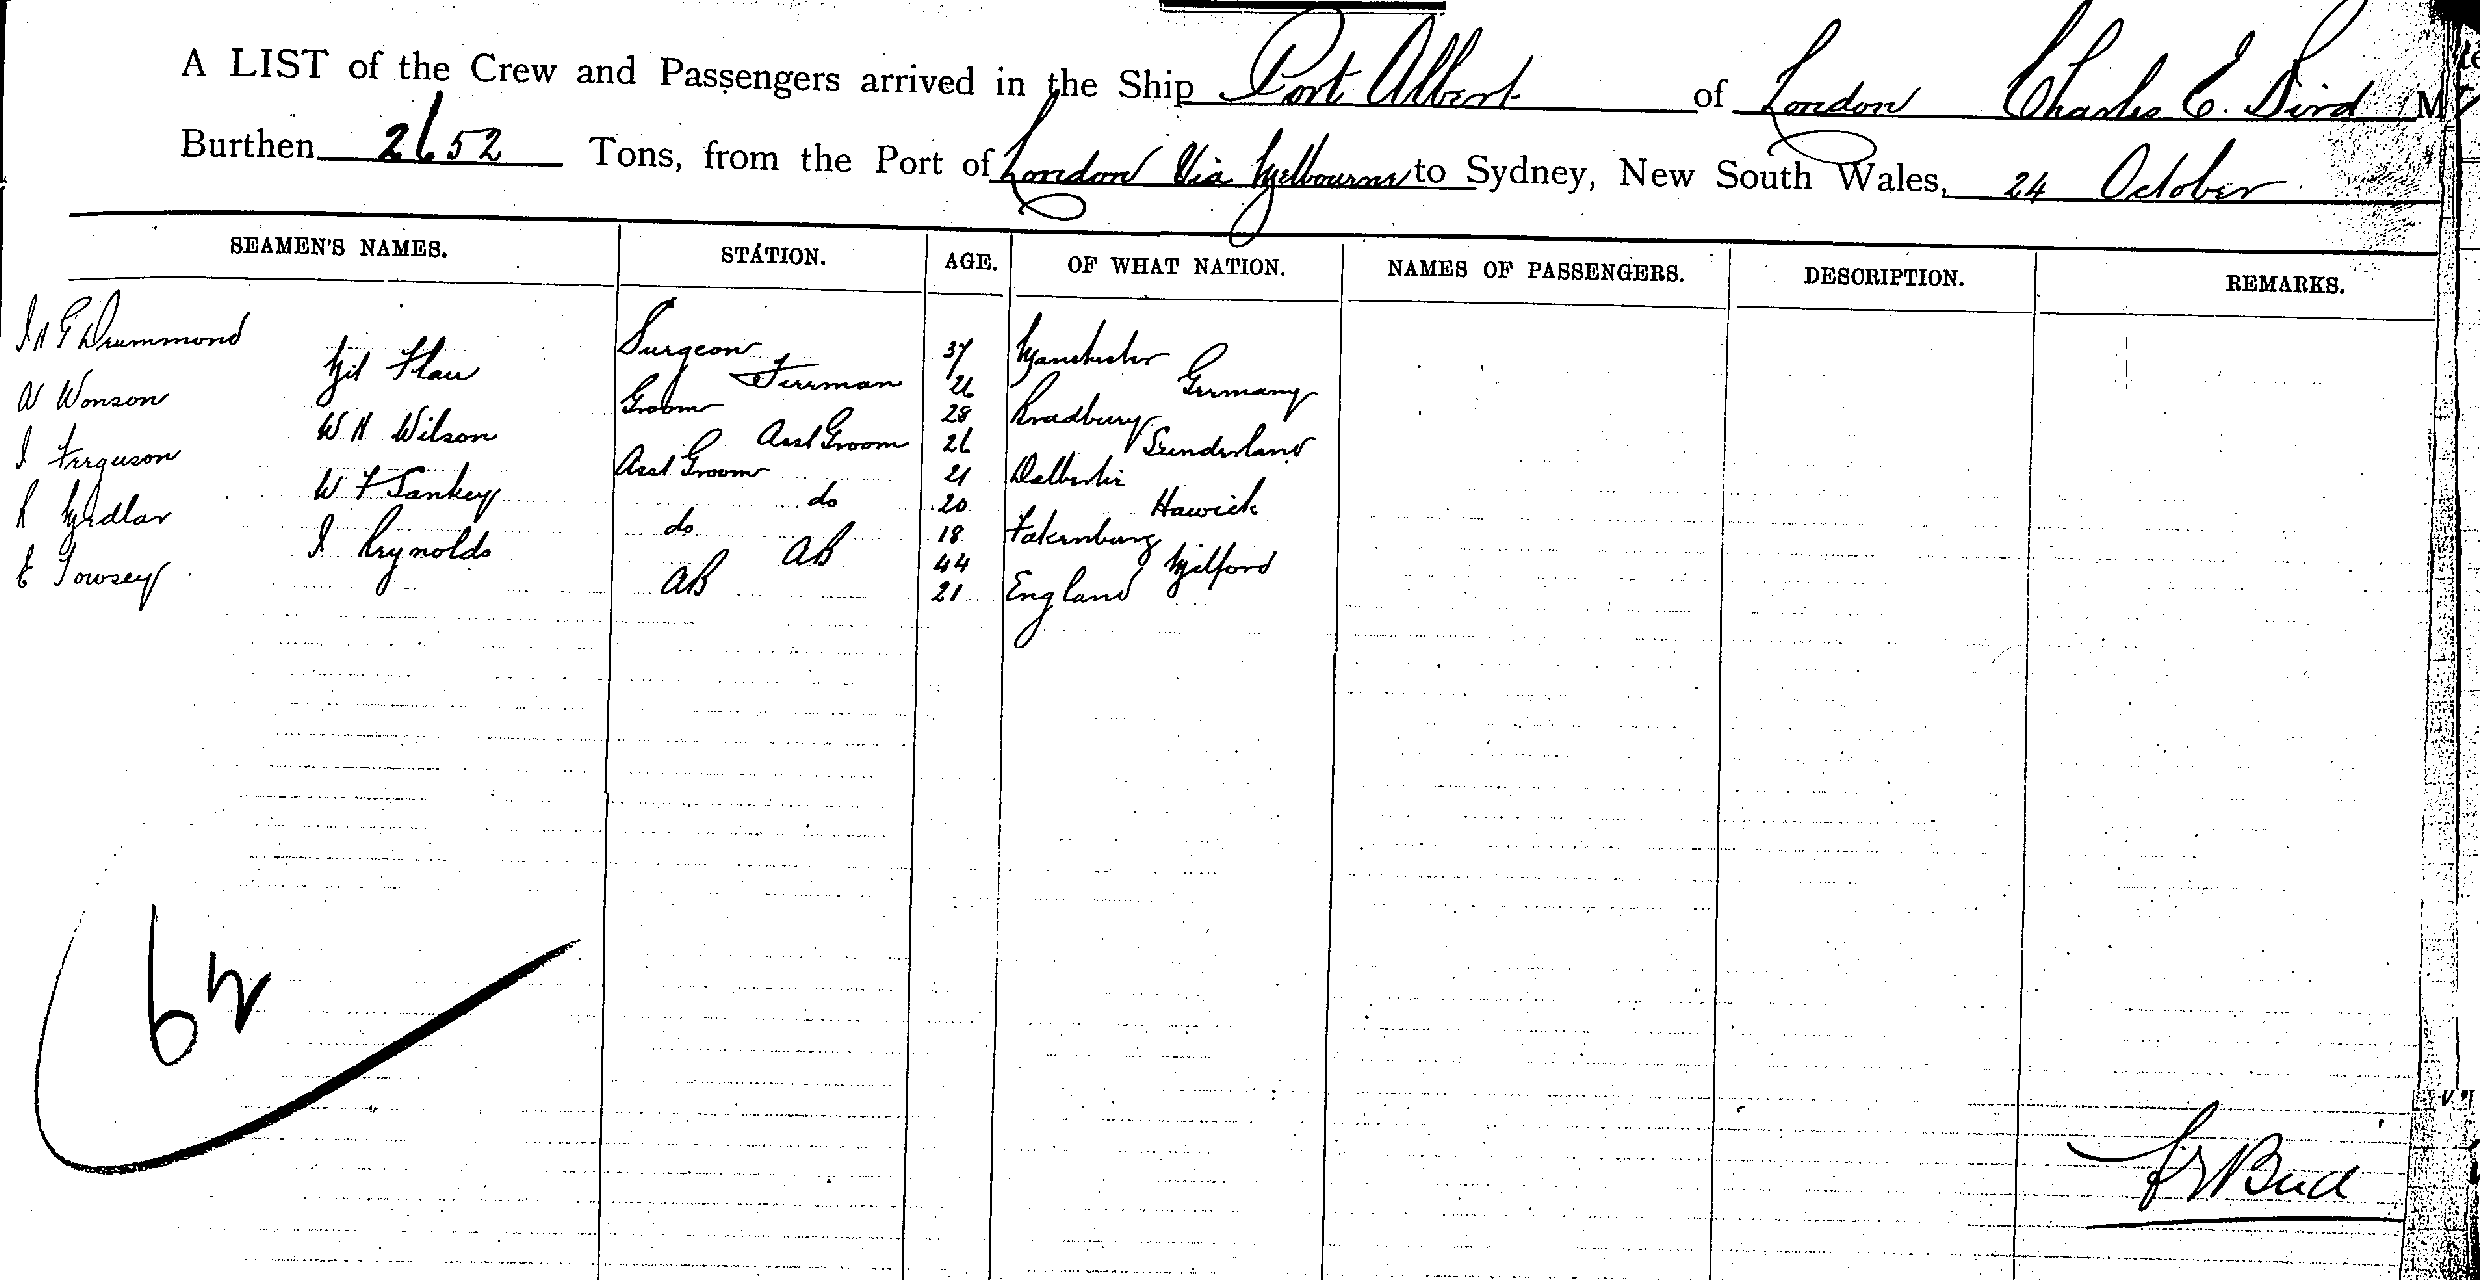 A LIST of the Crew and Passengers arrived in the Ship Port Albert of London Charles E. Bird M
Burthen 2652 Tons, from the Port of London Via Melbourne to Sydney, New South Wales, 24 October
SEAMEN'S NAMES. STATION. AGE. OF WHAT NATION. NAMES OF PASSENGERS. DESCRIPTION. REMARKS.
Drummond Surgeon 37 Manchester
Fireman 26 Germany
W Wonson Groom 28 Bradbury
W H Wilson Asst Groom 26 Sunderland
J Ferguson Asst Groom 21 Dalbeattie
W F Sankey do 20 Hawick
R Medlar do 18
J Reynolds AB 44 Milford
E Towsey AB 21 England
62
Bird